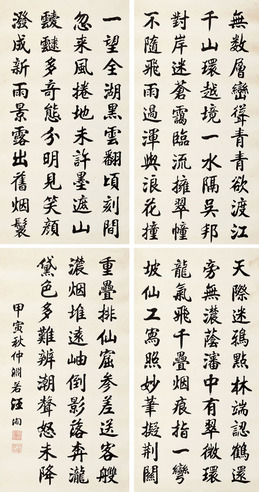 無數層巒聳青青欲渡江
千山環越境一水隔吳邦
對岸迷蒼靄臨流擁翠幢
不隨飛雨過渾與浪花撞
一望全湖黑雲翻頃刻間
忽來風捲地未許墨遮山
靉靆多奇態分明見笑顏
潑成新雨景露出舊烟鬟
天際迷鴉點林端認鶴還
旁無濃蔭瀋中有翠微環
龍氣飛千疊烟痕指一彎
坡仙工寫照妙筆擬荊關
重疊排仙窟參差送客艭
濃烟堆遠岫倒影落奔瀧
黛色多難辨湖聲怒未降
甲寅秋仲淵若汪洵